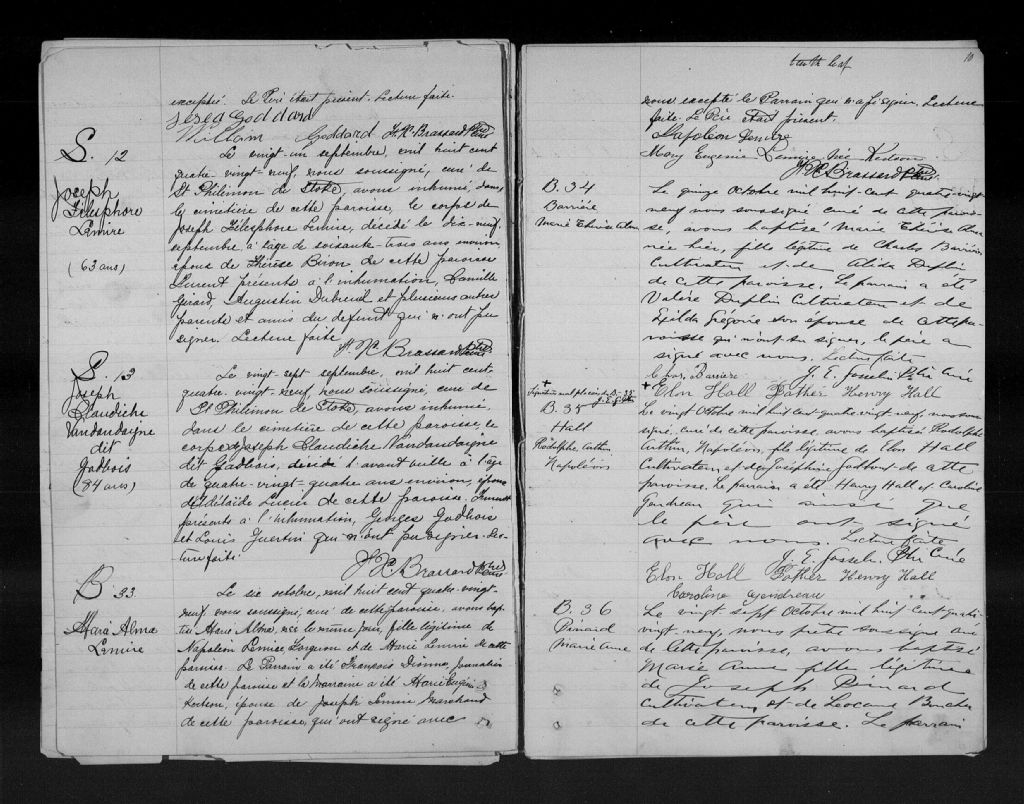 excepté. Le Père était présent. Lecture faite.
Goddard
William Goddard J. H. C. Brassard Ptre Curé
S. 12
Joseph
Télesphore
Lemire
(63 ans)
Le vingt-un septembre, mil huit cent
quatre-vingt-neuf nous soussigné, curé de
St Philémon de Stoke, avons inhumé dans
le cimetière de cette paroisse, le corps de
Joseph Télesphore Lemire, décédé le dix-neuf
septembre à l'âge de soixante-trois ans environ
époux de Thérèse Biron de cette paroisse
Furent présents à l'inhumation, Camille
Girard, Augustin Dubreuil et plusieurs autres
parents et amis du defunt qui n'ont pu
signer. Lecture faite
J. H. C. Brassard Ptre Curé
S. 13
Joseph
Claudiche
Vandandaigne
dit
Gadbois
(84 ans)
Le vingt-sept septembre, mil huit cent
quatre-vingt-neuf, nous soussigné, curé de
St Philémon de Stoke, avons inhumé,
dans le cimetière de cette paroisse, le
corps de Joseph Claudiche Vandandaigne
dit Gadbois, décédé l'avant veille à l'âge
de quatre-vingt-quatre ans environ, époux
d'Adelaïde Lucier de cette paroisse. Furent
présents à l'inhumation, Georges Gadbois
et Louis Guertin qui n'ont pu signer. Lec-
ture faite
J. H. C. Brassard Ptre Curé
B 33
Marie Alma
Lemire
Le six octobre, mil huit cent quatre-vingt-
neuf, nous soussigné, curé de cette paroisse, avons bap-
tisé Marie Alma, née le même jour, fille légitime de
Napoléon Lemire, forgeron et de Marie Lemire de cette
paroisse. Le Parrain a été François Dionne, journalier
de cette paroisse et la marraine a été Marie Eugénie
épouse de Joseph Lemire Marchand
de cette paroisse, qui ont signé avec
tenth leaf
10
nous excepté le Parrain qui n'a pu signer. Lecture
faite. Le Père était présent.
Napoléon Lemire
Mary Eugenie Lemire née
J. H. C. Brassard Ptre Curé
B. 34
Barrière
Marie Thérèse Alma
Le quinze Octobre mil huit-cent quatre-vingt
neuf nous soussigné curé de cette parois-
se, avons baptisé Marie Thérèse Alma
née hier, fille légitime de Charles Barrière
Cultivateur et de Alida Duplin
de cette paroisse. Le parrain a été
Valère Duplin Cultivateur et de
Exilda Grégoire son épouse de cette pa-
roisse qui n'ont su signer, le père a
signé avec nous. Lecture faite
Barrière J. E. Josselin Ptre Curé
+
Signature mal placée de B. 35
J. E. J. Ptre
+ Elon Hall Father Henry Hall
B. 35
Hall
Rodolphe Arthur
Napoléon
Le vingt Octobre mil huit cent quatre vingt neuf, nous sous-
signé, curé de cette paroisse, avons baptisé Rodolphe
Arthur, Napoléon, fils légitime de Elon Hall
Cultivateur, et de Joséphine Jodbout de cette
paroisse. Le parrain a été Henry Hall et Caroline
Gendreau qui ainsi que
le père ont signé
avec nous. Lecture faite
J. E. Josselin Ptre Curé
Elon Hall Father Henry Hall
Caroline Gendreau
B. 36
Pinard
Marie Anne
Le vingt sept Octobre mil huit cent quatre
vingt neuf, nous prêtre soussigné curé
de cette paroisse, avons baptisé
Marie Anne fille légitime
de Joseph Pinard
Cultivateur, et de Léocadie Boucher
de cette paroisse. Le parrain